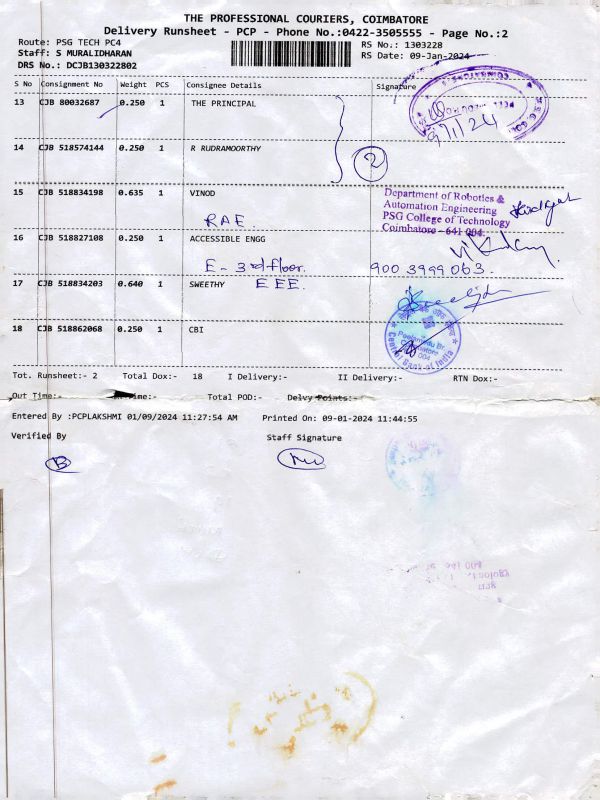 THE PROFESSIONAL COURIERS, COIMBATORE
Delivery Runsheet - PCP - Phone No.:0422-3505555 - Page No.:2
Route: PSG TECH PC4
RS No.: 1303228
Staff: S MURALIDHARAN
RS Date: 09-Jan-2024
DRS No.: DCJB130322802
S No Consignment No Weight PCS Consignee Details Signature
13 CJB 80032687 0.250 1 THE PRINCIPAL
9/1/24
14 CJB 518574144 0.250 1 R RUDRAMOORTHY
2
15 CJB 518834198 0.635 1 VINOD
Department of Robotics &
Automation Engineering
PSG College of Technology
Coimbatore - 641 004.
RAE.
16 CJB 518827108 0.250 1 ACCESSIBLE ENGG
E - 3rd floor. 900 3999 063.
17 CJB 518834203 0.640 1 SWEETHY EEE.
18 CJB 518862068 0.250 1 CBI
Peelamedu Br.
Coimbatore
004
Central Bank of India
Tot. Runsheet:- 2 Total Dox:- 18 I Delivery:- II Delivery:- RTN Dox:-
Out Time:- Time:- Total POD:- Delvy Points:-
Entered By :PCPLAKSHMI 01/09/2024 11:27:54 AM Printed On: 09-01-2024 11:44:55
Verified By Staff Signature